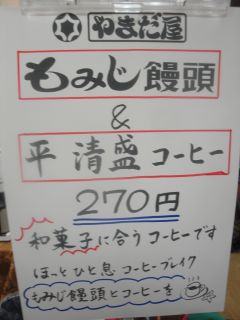 やまだ屋
もみじ饅頭
&
平清盛コーヒー
270円
和菓子に合うコーヒーです
ほーっとひと息コーヒーブレイク
もみじ饅頭とコーヒーを